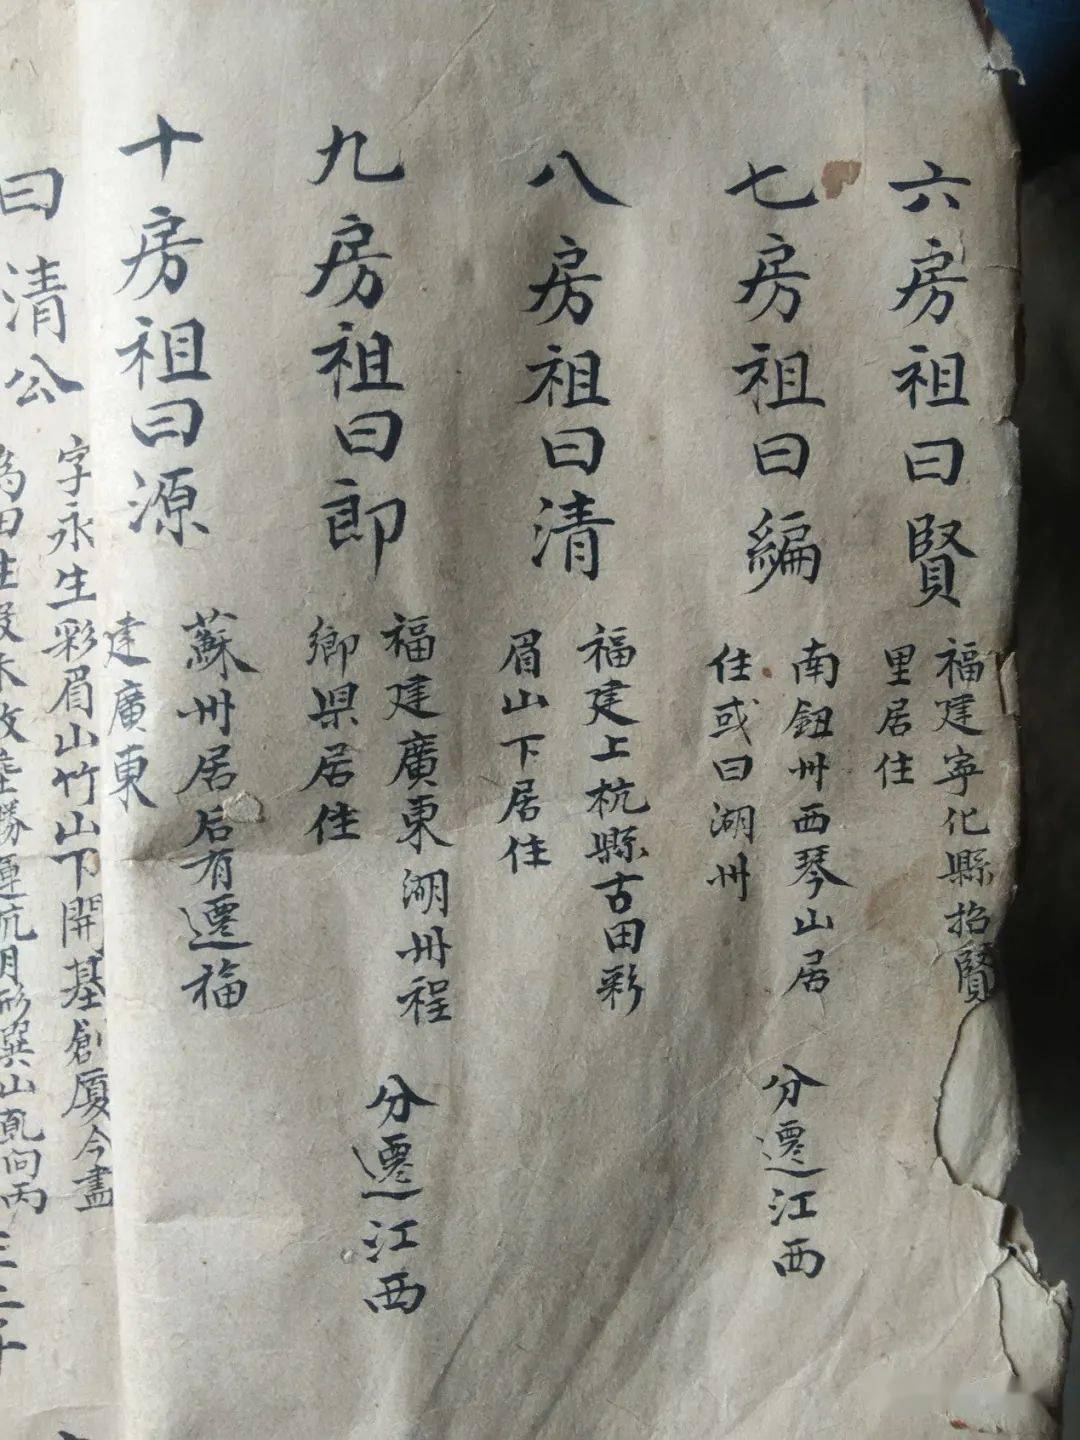 六房祖曰賢
福建寧化縣招賢
里居住
七房祖曰編
南鈕州西琴山居
住或曰湖州
分遷江西
八房祖曰清
福建上杭縣古田彩
眉山下居住
九房祖曰郎
福建廣東湖州程
鄉県居住
分遷江西
十房祖曰源
蘇州居后有遷福
建廣東
曰清公
字永生彩眉山竹山下開基創厦今盡
為田生没未收
山乾向丙
三子